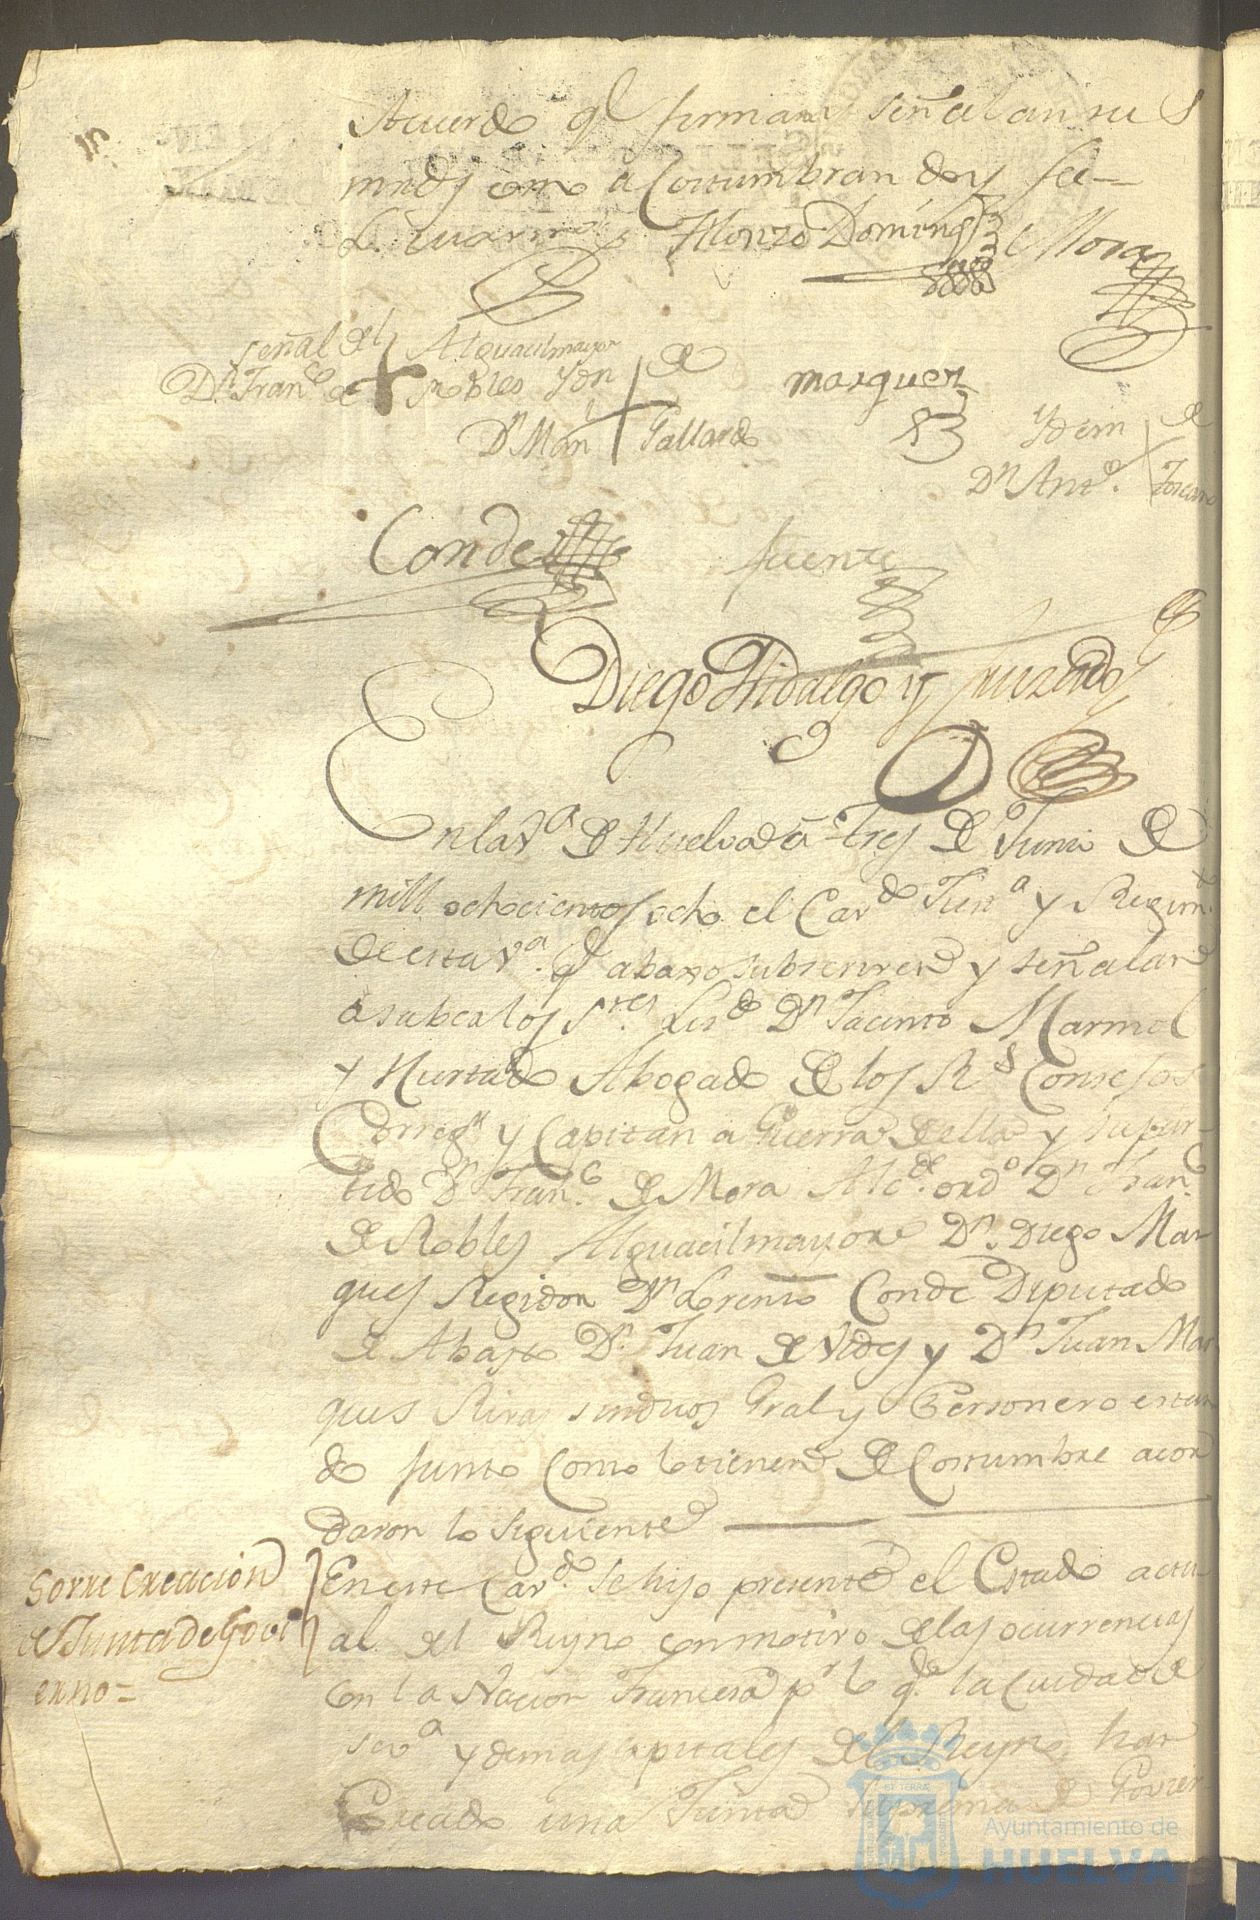 Acuerdo q.l firman y señalan sus
mrds como a Costumbran doy fee —
L. Marmol Alonzo Doming.z Mora
señal del Alguacil mayor
D.n Fran.co de + Robles Ydn de
D.n Man.l + Gallardo
marquez
Ydem de
D.n Ant.o Toscano
Conde
fuente
Diego Hidalgo y Quizado
En la V.a de Huelva a tres de Junio de
mill ochocientos ocho el Cav.do Just.a y Regim.to
de esta V.a q.e abaxo subscriven y señalan
a saber los S.res Lis.do D.n Jacinto Marmol
y Hurtado Abogado de los R.s Consejos
Correg.r y Capitan a Guerra de ella y su par-
tido D.n Fran.co de Mora Alc.de ord.o D.n Fran.co
de Robles Alguacil mayor D.n Diego Mar
ques Regidor D.n Lorenzo Conde Diputado
de Abasto D.n Juan de Vides y D.n Juan Mar
ques Rivas sindicos Gral y Personero estan
do junto como lo tienen de Costumbre acor
daron lo siguiente
Sovre Creacion
de Junta de Govi
erno =
En este Cav.do se hiso presente el Estado actu
al del Reyno con motivo de las ocurrencias
con la Nacion Francesa p.r lo q.e la Ciudad de
Sev.a y demas capitales del Reyno han
Creado una Junta Suprema de Govier
Ayuntamiento de
HUELVA